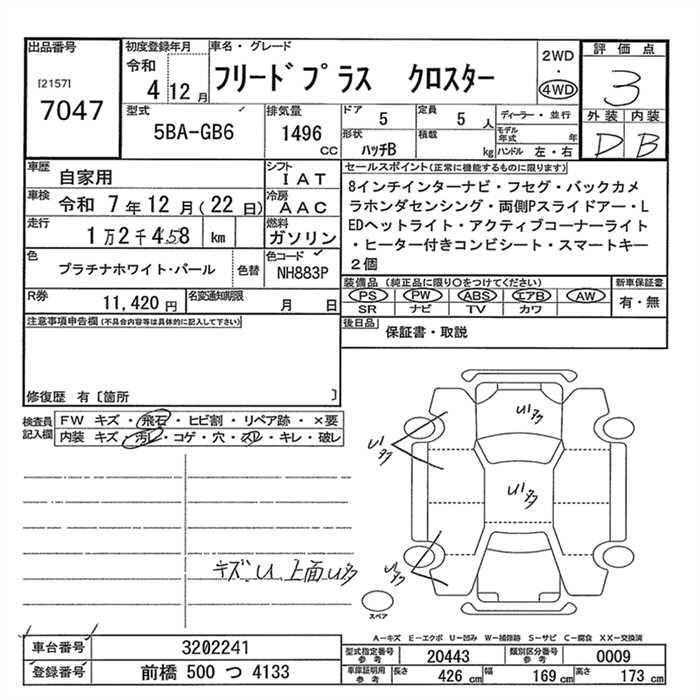 出品番号
[2157]
7047
初度登録年月
令和
4 12 月
車名・グレード
フリードプラス クロスター
2WD
・
4WD
評価点
3
外装 内装
D B
型式
5BA-GB6
排気量
1496
CC
ドア
5
定員
5 人
ディーラー・並行
形状
ハッチB
積載
kg
モデル年式 年
ハンドル 左・右
車歴
自家用
シフト
IAT
車検
令和 7 年 12 月 (22 日)
冷房
AAC
走行
1万2千458 km
燃料
ガソリン
色
プラチナホワイト・パール
色替
色コード
NH883P
R券
11,420 円
名変通知期限
月 日
セールスポイント(正常に機能するものに限ります)
8インチインターナビ・フセグ・バックカメ
ラホンダセンシング・両側Pスライドアー・L
EDヘットライト・アクティブコーナーライト
・ヒーター付きコンビシート・スマートキー
2個
装備品 (純正品に限り○をつけてください)
PS PW ABS エアB AW
SR ナビ TV カワ
新車保証書
有・無
後日品
保証書・取説
注意事項申告欄 (不具合内容等は具体的に記入して下さい)
修復歴 有 〔箇所 〕
検査員
記入欄
FW キズ・飛石・ヒビ割・リペア跡・×要
内装 キズ・汚レ・コゲ・穴・スレ・キレ・破レ
U1タ
U1タ
U1タ
U1タ
キズ、U、上面Uタ
スペア
A―キズ E―エクボ U―凹み W―補修跡 S―サビ C―腐食 XX―交換済
車台番号
3202241
登録番号
前橋 500 つ 4133
型式指定番号
参考
20443
類別区分番号
参考
0009
車庫証明用
参考
長さ
426 cm
幅
169 cm
高さ
173 cm